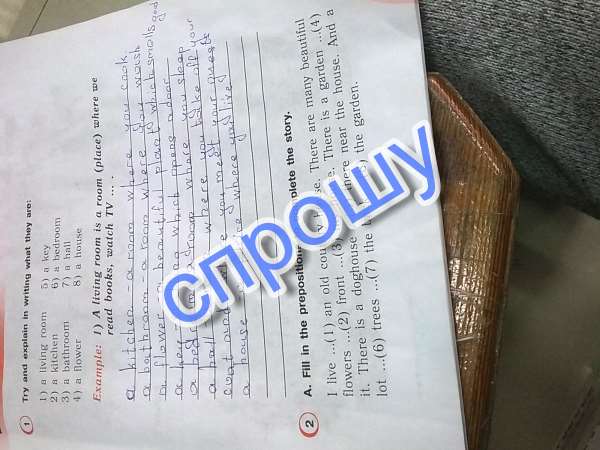 1 Try and explain in writing what they are:
1) a living room 5) a key
2) a kitchen 6) a bedroom
3) a bathroom 7) a hall
4) a flower 8) a house
Example: 1) A living room is a room (place) where we
read books, watch TV ... .
a kitchen - a room where you cook.
a bathroom - a room where you wash
a flower - a beautiful plant which smells good
a key which opens a door
a bedroom where you sleep
a hall where you take off your
coat and you meet your guests
a house where you live
2 A. Fill in the the story.
I live ...(1) an old There are many beautiful
flowers ...(2) front ...(3) There is a garden ...(4)
it. There is a doghouse there near the house. And a
lot ...(6) trees ...(7) the the garden.
спрошу